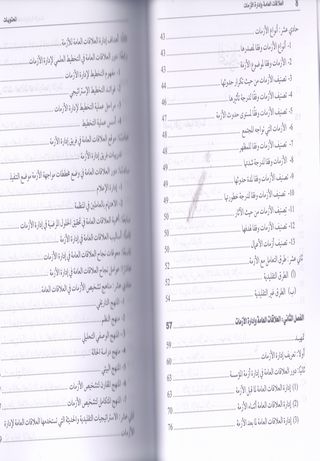 8 العلاقات العامة وإدارة الأزمات
حادي عشر: أنواع الأزمات 43
1- أنواع الأزمات وفقا لمصدرها 43
2- الأزمات وفقا لموضوع الأزمة
3- تصنيف الأزمات من حيث تكرار حدوثها
4- تصنيف الأزمات وفقا لدرجة تأثيرها
5- تصنيف الأزمات وفقا لمستوى حدوث الأزمة
6- الأزمات التي تواجه المجتمع
7- تصنيف الأزمات وفقا للمظهر
8- تصنيف الأزمات وفقا لدرجة شدتها
9- تصنيف الأزمات وفقا لمدة حدوثها
10- تصنيف الأزمات وفقا لدرجة خطورتها
11- تصنيف الأزمات من حيث الآثار
12- تصنيف الأزمات وفقا لهدفها
13- تصنيف أزمات الأعمال
ثاني عشر: طرق التعامل مع الأزمة
(أ) الطرق التقليدية 52
(ب) الطرق غير التقليدية 54
الفصل الثاني: العلاقات العامة وإدارة الأزمات 57
تمهيد 59
أولا: تعريف إدارة الأزمات 60
ثانيا: دور العلاقات العامة في إدارة أزمة المؤسسة 63
(1) إدارة العلاقات العامة ما قبل الأزمة 63
(2) إدارة العلاقات العامة أثناء الأزمة 70
(3) إدارة العلاقات العامة ما بعد الأزمة 76
المحتويات
أهداف إدارة العلاقات العامة للأزمة
دور العلاقات العامة في التخطيط العلمي لإدارة الأزمات
1- مفهوم التخطيط لإدارة الأزمات
2- فوائد التخطيط الاستراتيجي
3- مراحل عملية التخطيط لإدارة الأزمات
4- أسس عملية التخطيط
موقع العلاقات العامة في فريق إدارة الأزمة
تدريبات فريق إدارة الأزمة
دور العلاقات العامة في وضع مخططات مواجهة الأزمة موضع التنفيذ
1- إدارة الإعلام
2- الاهتمام بالعاملين في المنظمة
أهمية العلاقات العامة في تحقيق الحلول المرضية في إدارة الأزمات
أساليب العلاقات العامة في إدارة الأزمات
معوقات نجاح العلاقات العامة في إدارة الأزمات
عوامل نجاح العلاقات العامة في إدارة الأزمة
مناهج تشخيص الأزمات في العلاقات العامة
1- المنهج التاريخي
2- منهج النظم
3- المنهج الوصفي التحليلي
4- منهج دراسة الحالة
5- المنهج البيئي
6- المنهج المقارن لتشخيص الأزمات
7- المنهج المتكامل لتشخيص الأزمات
الاستراتيجيات التقليدية والحديثة التي تستخدمها العلاقات العامة لإدارة
الأزمات